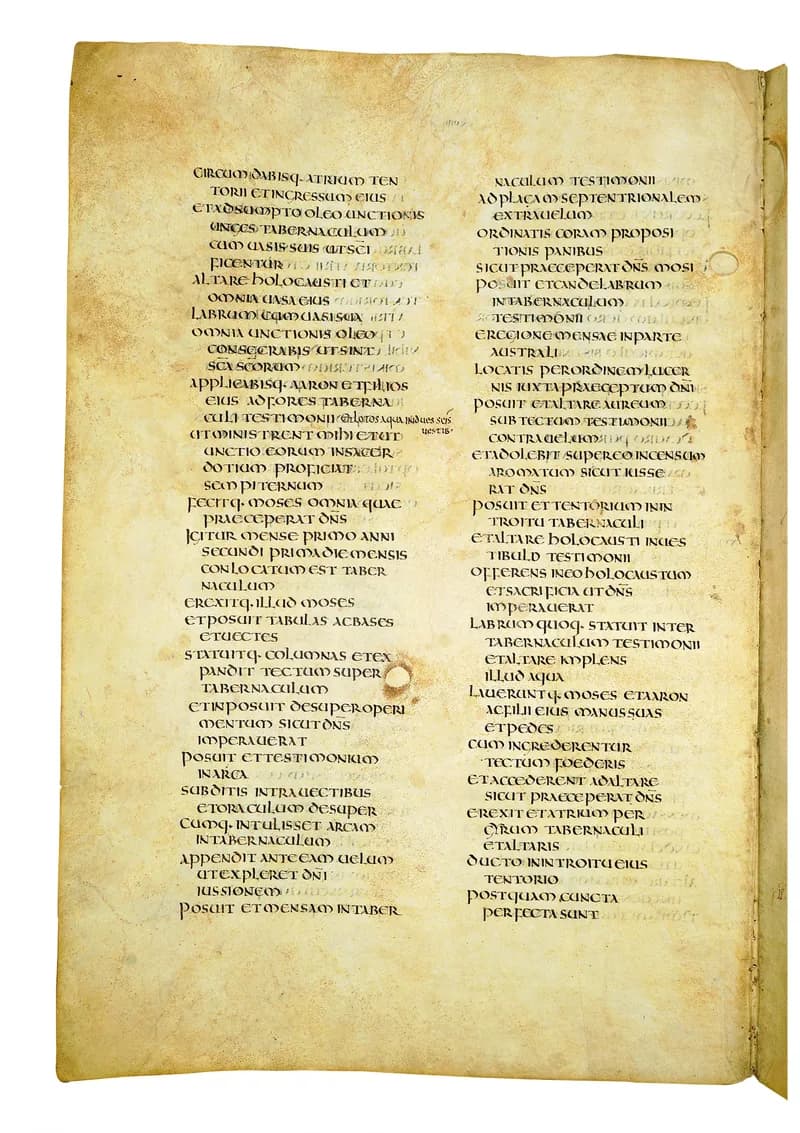 CIRCUM DABISQ· ATRIUM TEN
TORII ET INGRESSUM EIUS
ET ADSUMPTO OLEO UNCTIONIS
UNGES TABERNACULUM
CUM UASIS SUIS UT SC̄I
FICENTUR
ALTARE HOLOCAUSTI ET
OMNIA UASA EIUS
LABRUM CUM UASI SUA
OMNIA UNCTIONIS OLEO
CONSECRABIS UT SINT
SC̄A SC̄ORUM
APPLICABISQ· AARON ET FILIOS
EIUS AD FORES TABERNA
CULI TESTIMONII et lotos aqua indues sc̄is
uestib·
UT MINISTRENT MIHI ET UT
UNCTIO EORUM IN SACER
DOTIUM PROFICIAT
SEMPITERNUM
FECITQ· MOSES OMNIA QUAE
PRAECEPERAT DN̄S
IGITUR MENSE PRIMO ANNI
SECUNDI PRIMA DIE MENSIS
CONLOCATUM EST TABER
NACULUM
EREXITQ· ILLUD MOSES
ET POSUIT TABULAS AC BASES
ET UECTES
STATUITQ· COLUMNAS ET EX
PANDIT TECTUM SUPER
TABERNACULUM
ET INPOSUIT DESUPER OPERI
MENTUM SICUT DN̄S
IMPERAUERAT
POSUIT ET TESTIMONIUM
IN ARCA
SUBDITIS INTRA UECTIBUS
ET ORACULUM DESUPER
CUMQ· INTULISSET ARCAM
IN TABERNACULUM
APPENDIT ANTE EAM UELUM
UT EXPLERET DN̄I
IUSSIONEM
POSUIT ET MENSAM IN TABER
NACULUM TESTIMONII
AD PLAGAM SEPTENTRIONALEM
EXTRA UELUM
ORDINATIS CORAM PROPOSI
TIONIS PANIBUS
SICUT PRAECEPERAT DN̄S MOSI
POSUIT ET CANDELABRUM
IN TABERNACULUM
TESTIMONII
E REGIONE MENSAE IN PARTE
AUSTRALI
LOCATIS PER ORDINEM LUCER
NIS IUXTA PRAECEPTUM DN̄I
POSUIT ET ALTARE AUREUM
SUB TECTUM TESTIMONII
CONTRA UELUM
ET ADOLEBIT SUPER EO INCENSUM
AROMATUM SICUT IUSSE
RAT DN̄S
POSUIT ET TENTORIUM IN IN
TROITU TABERNACULI
ET ALTARE HOLOCAUSTI IN UES
TIBULO TESTIMONII
OFFERENS IN EO HOLOCAUSTUM
ET SACRIFICIA UT DN̄S
IMPERAUERAT
LABRUM QUOQ· STATUIT INTER
TABERNACULUM TESTIMONII
ET ALTARE IMPLENS
ILLUD AQUA
LAUERUNTQ· MOSES ET AARON
AC FILII EIUS MANUS SUAS
ET PEDES
CUM INGREDERENTUR
TECTUM FOEDERIS
ET ACCEDERENT AD ALTARE
SICUT PRAECEPERAT DN̄S
EREXIT ET ATRIUM PER
GYRUM TABERNACULI
ET ALTARIS
DUCTO IN INTROITU EIUS
TENTORIO
POSTQUAM CUNCTA
PERFECTA SUNT